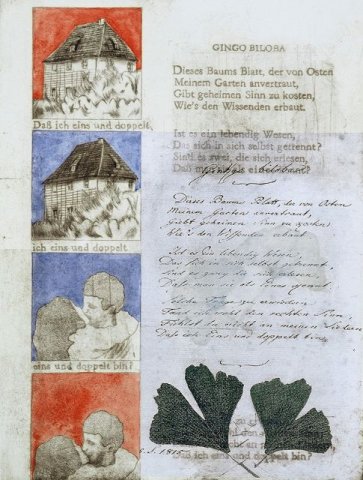 GINGO BILOBA
Dieses Baums Blatt, der von Osten
Meinem Garten anvertraut,
Gibt geheimen Sinn zu kosten,
Wie's den Wissenden erbaut.
Ist es ein lebendig Wesen,
Das sich in sich selbst getrennt?
Sind es zwei, die sich erlesen,
Daß
Dieses Baums Blatt, der von Osten
Meinem Garten anvertraut,
Giebt geheimen Sinn zu kosten
Wie's den Wissenden erbaut.
Ist es Ein lebendig Wesen,
Das sich in sich selbst getrennt,
Sind es zwey die sich erlesen,
Daß man sie als Eines kennt.
Solche Frage zu erwiedern
Fand ich wohl den rechten Sinn,
Fühlst du nicht an meinen Liedern
Daß ich Eins und doppelt bin.
1815
Daß ich eins und doppelt bin?
Daß ich eins und doppelt,
ich eins und doppelt
eins und doppelt bin?